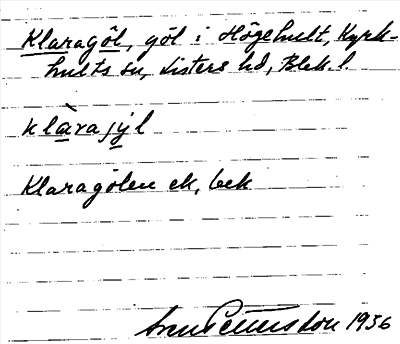 Klaragöl, göl i Högehult, Kyrk-
hults sn, Listers hd, Blek. l.
klàrajy̱l
Klaragölen ek, bek
Sven Pettersson 1936